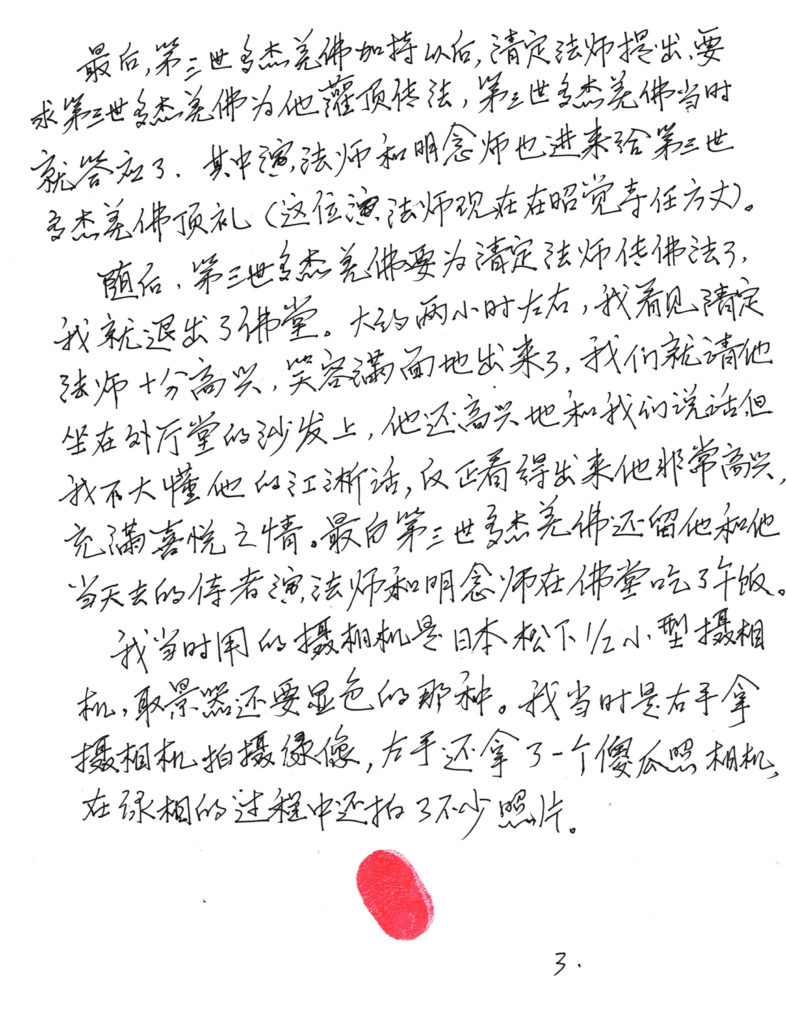 最后,第三世多杰羌佛加持以后,清定法师提出,要
求第三世多杰羌佛为他灌顶传法,第三世多杰羌佛当时
就答应了.其中演法师和明念师也进来给第三世
多杰羌佛顶礼(这位演法师现在在昭觉寺任方丈)。
随后.第三世多杰羌佛要为清定法师传佛法了,
我就退出了佛堂。大约两小时左右,我看见清定
法师十分高兴,笑容满面地出来了,我们就请他
坐在外厅堂的沙发上,他还高兴地和我们说话但
我不大懂他的江淅话,反正看得出来他非常高兴,
充满喜悦之情。最后第三世多杰羌佛还留他和他
当天去的侍者演法师和明念师在佛堂吃了午饭。
我当时用的摄相机是日本松下1/2小型摄相
机,取景器还要显色的那种。我当时是右手拿
摄相机拍摄録像,左手还拿了一个傻瓜照相机,
在录相的过程中还拍了不少照片。
3.